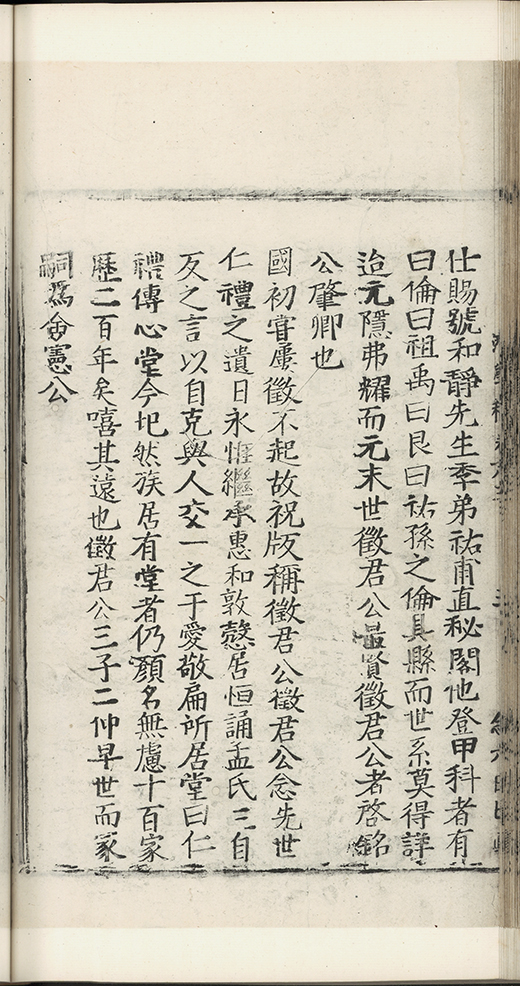 仕賜號和靜先生季弟祐甫直秘閣他登甲科者有
曰倫曰祖禹曰艮曰祐孫之倫具縣而世系莫得詳
迨元隱弗耀而元末世徵君公最賢徵君公者啓銘
公肇卿也
國初嘗屢徵不起故祝版稱徵君公徵君公念先世
仁禮之遺日永惟繼承惠和敦慤居恒誦孟氏三自
反之言以自克與人交一之于愛敬扁所居堂曰仁
禮傳心堂今圮然族居有堂者仍顏名無慮十百家
歷二百年矣嘻其遠也徵君公三子二仲早世而冢
嗣爲僉憲公